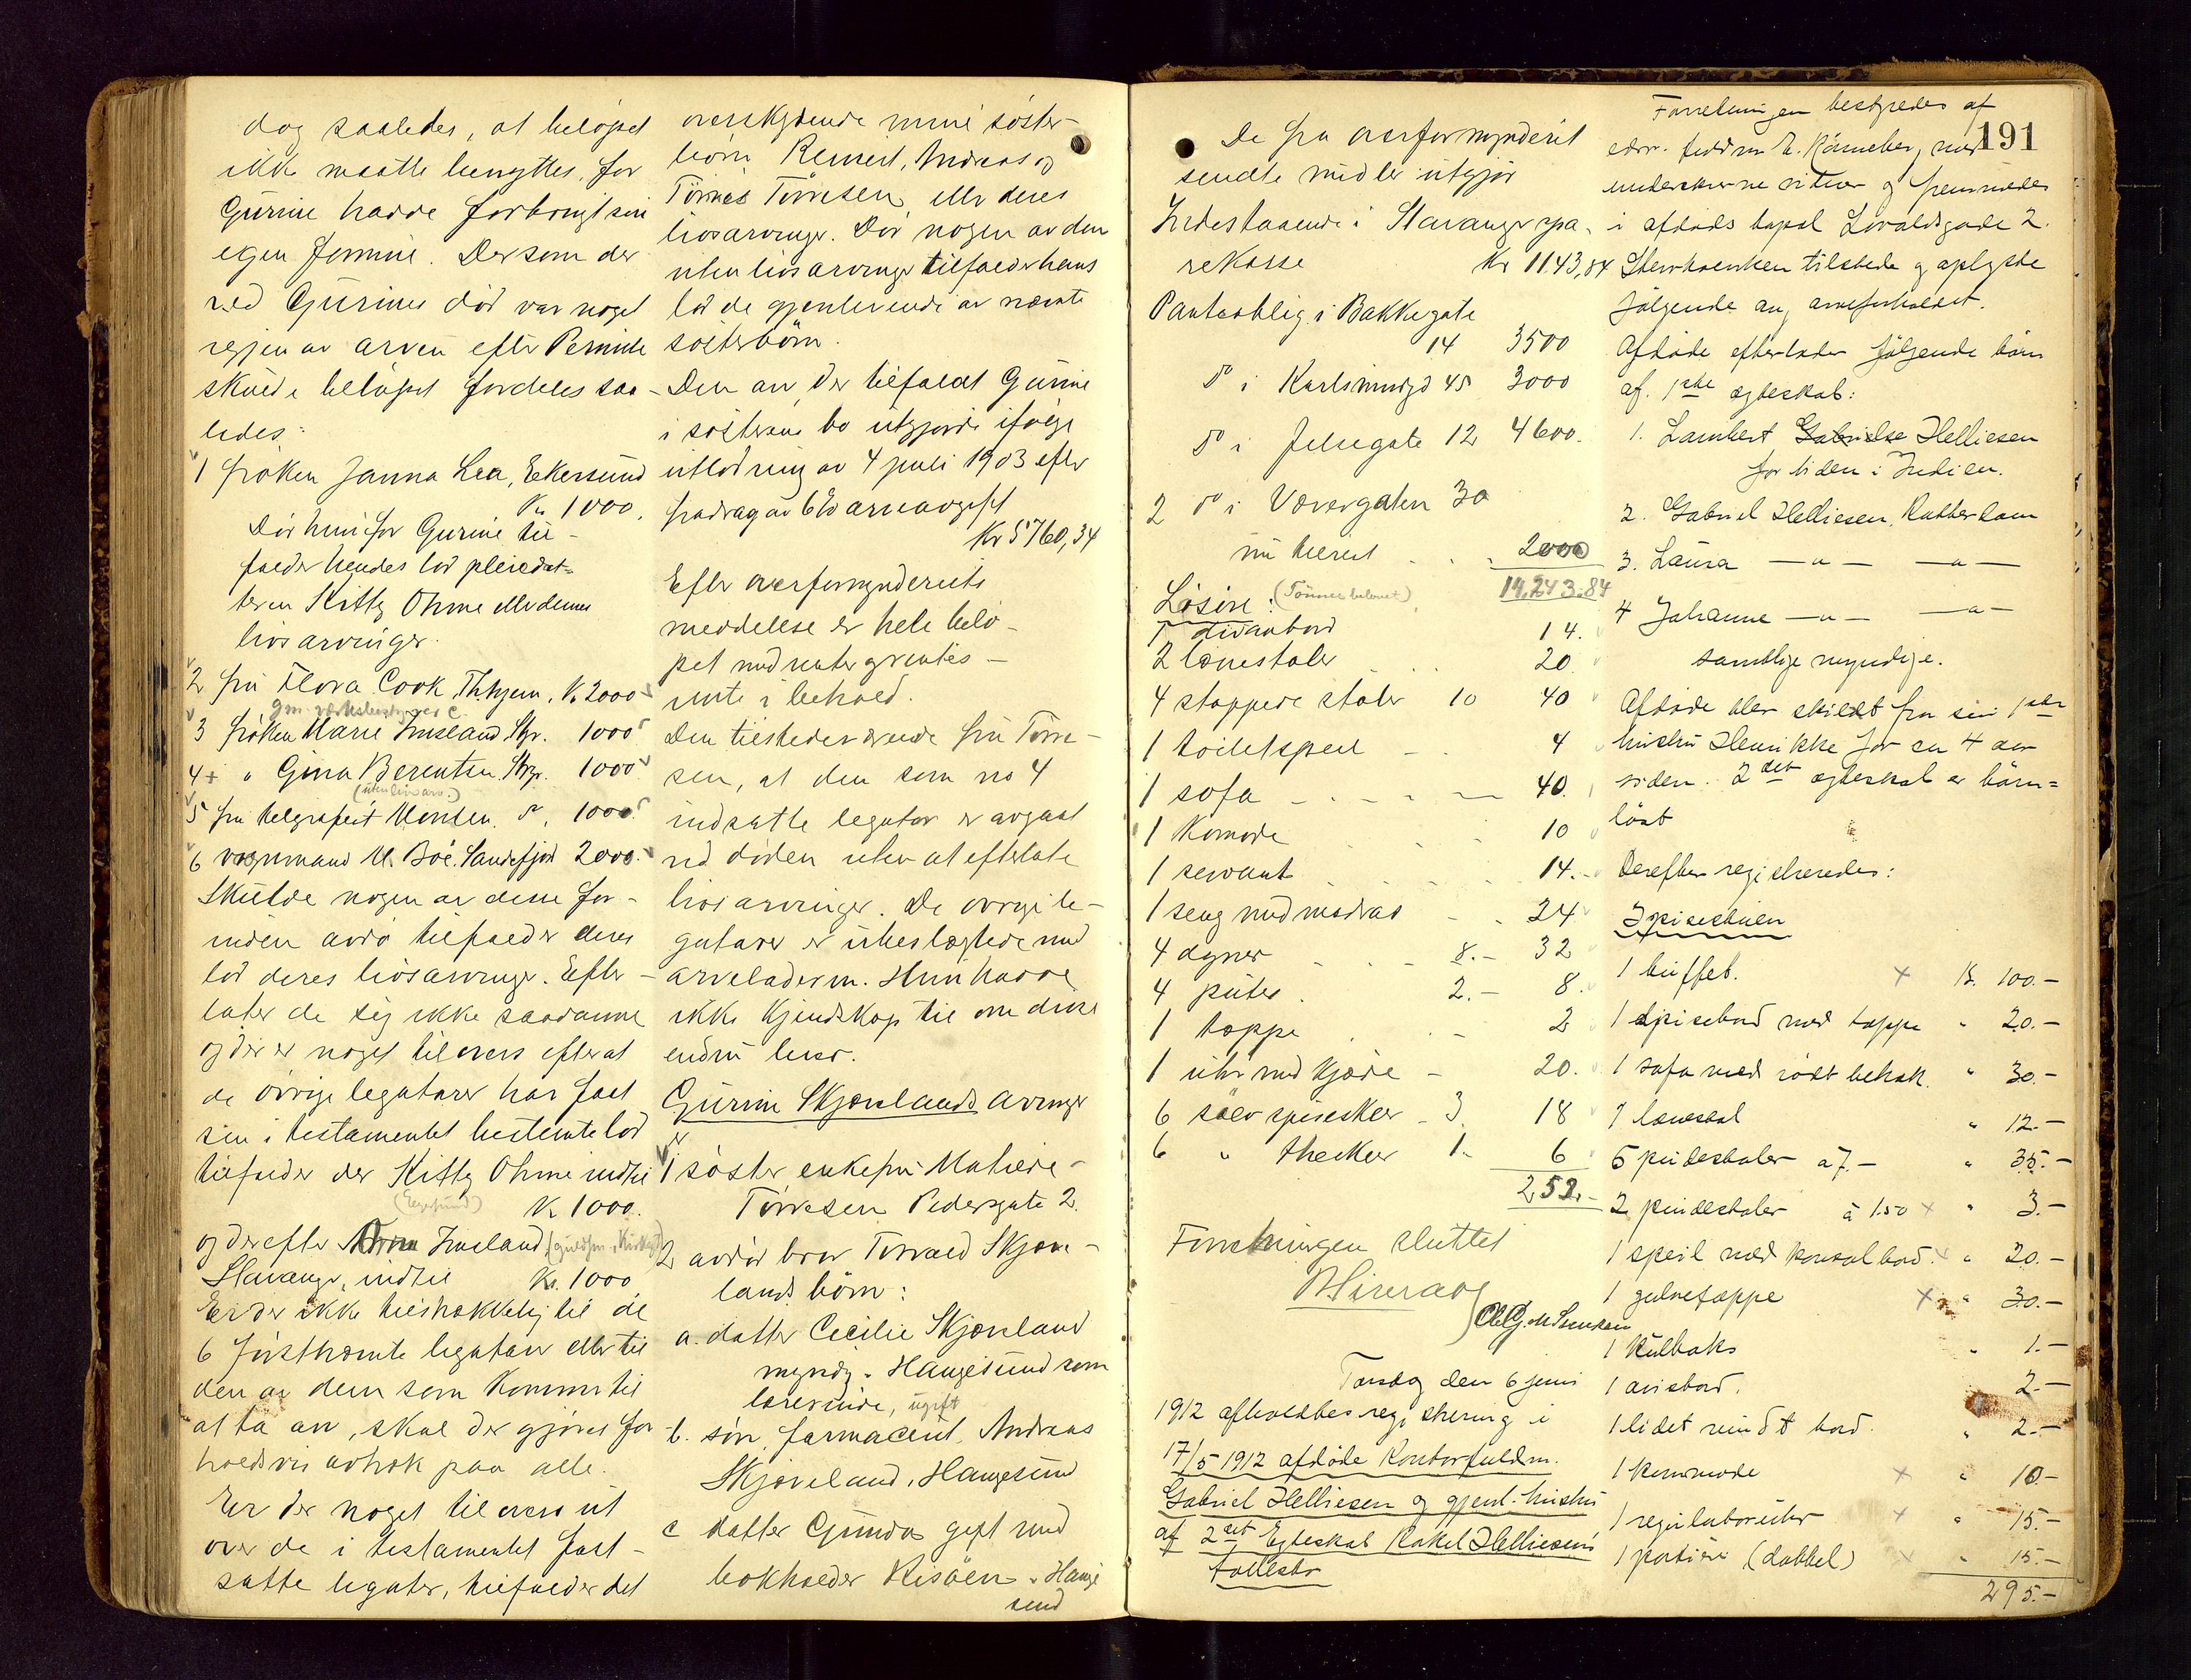 dog saaledes, at beløpet
ikke maatte benyttes, før
Gurine hadde forbrugt sin
egen formue. Dersom der
ved Gurines død var noget
igjen av arven efter Pernille
skulde beløpet fordeles saa-
ledes:
1 frøken Janna Lea, Eekersund
Kr 1000.
Dør hun før Gurine til-
falder hendes lod pleiedat-
teren Kitty Ohme eller dennes
livsarvinger.
2 fru Flora Cook, Th.hjem, Kr 2000
3 frøken Marie Imsland Stvgr. 1000
4+ " Gina Berentsen Stvgr. 1000
(uten livsarv.)
5 fru telegrafist Monsen do. 1000
6 vognmand M. Bøe. Sandefjord 2000.
Skulde nogen av disse for-
inden avdø tilfalder deres
lod deres livsarvinger. Efter-
later de sig ikke saadanne
og der er noget tilovers efterat
de øvrige legatarer har faat
sin i testamentet bestemte lod
tilfalder der Kitty Ohme indtil
(Egersund)
Kr 1000.
og derefter Imsland
Stavanger, indtil Kr. 1000
Er der ikke tilstrækkelig til de
6 først nævnte legatarer eller til
den av dem som kommer til
at ta arv, skal der gjøres for-
holdsvis avtræk paa alle.
Er der noget tilovers ut
over de i testamentet fast-
satte legater, tilfalder det
overskydende mine søster-
børn Reinert, Andreas og
Tønnes Tørresen eller deres
livsarvinger. Dør nogen av dem
uten livsarvinger tilfalder hans
lod de gjenlevende av nævnte
søsterbørn.
Den arv, der tilfaldt Gurine
i søsterens bo utgjorde ifølge
utlodning av 4 juli 1903 efter
fradrag av 6% arveavgift
Kr 5760,34
Efter overformynderiets
meddelelse er hele belø-
pet med renter gjentes-
rente i behold.
Den tilstedeværende fru Tørre-
sen, at den som no 4
indsatte legatar er avgaat
ved døden uten at efterlate
livsarvinger. De øvrige le-
gatarer er ubeslægtede med
arveladersken. Hun havde
ikke kjendskap til om disse
endnu lever.
Gurine Skjævelands arvinger
er
1 søster, enkefru Matilde
Tørresen Pedersgate 2.
2 avdød bror Torvald Skjæve-
lands børn:
a. datter Cecilie Skjæveland
myndig - Haugesund som
lærerinde, ugift
b. søn, farmaceut, Andreas
Skjæveland, Haugesund
c datter Gunda gift med
bokholder Risøen - Hauge
sund
De fra overformynderiet
sendte midler utgjør
Indestaaende i Stavanger spa-
rekasse Kr 1143,84
Panteoblig. i Bakkegate
14 3500
do i Karlsmindegd 45 3000
do i Jellsegate 12 4600.
2 do i Vævergaten 30
nu hævet 2000
14,243.84
Løsøre: (Tønnes beboet)
1 divanbord 14.
2 lænestoler 20.
4 stoppede stoler 10 40
1 toiletspeil 4
1 sofa 40.
1 Komode 10
1 servant 14.-
1 seng med madras 24
4 dyner 8.- 32
4 puter 2.- 8.
1 tæppe 2
1 uhr med kjæde 20.
6 sølv spiseskeer 3. 18
6 " theskeer 1. 6
252.-
Forretningen sluttet
Torsdag den 6 juni
1912 afholdtes registrering i
17/5 1912 afdøde Kontorfuldm.
Gabriel Helliesen og gjenl. hustru
af 2det Egteskab Rakel Helliesens
fællesbo
191
Forretningen bestyredes af
edsv. fuldm. E. Rønneberg med
underskrevne vitner og fremmødes
i afdødes bopæl Lovaldsgade 2.
Enken tilstede og oplyste
følgende ang arveforholdet.
Afdøde efterlader følgende børn
af 1ste egteskab:
1. Lambert Gabrielse Helliesen
for tiden i Indien.
2. Gabriel Helliesen,
3. Laura — " — — " —
4 Johanne — " — — " —
samtlige myndige.
Afdøde blev skildt fra sin 1ste
hustru Henrikke for ca 4 aar
siden. 2det egteskab er barn=
løst
Derefter registreredes:
I spisestuen
1 buffet. + Kr. 100.-
1 spisebord med tæppe " 20.-
1 sofa med rødt betræk. " 30.-
1 lænestol " 12.-
5 pindestoler a 7.- " 35.-
2 pindestoler à 1.50 + " 3.-
1 speil med konsolbord. + " 20.-
1 gulvtæppe + " 30.-
1 kulboks " 1.-
1 avisbord. 2.-
1 lidet rundt bord. " 2.-
1 kommode + " 10.-
1 regulatoruhr + " 15.-
1 portiere (dobbel) + " 15.-
295.-